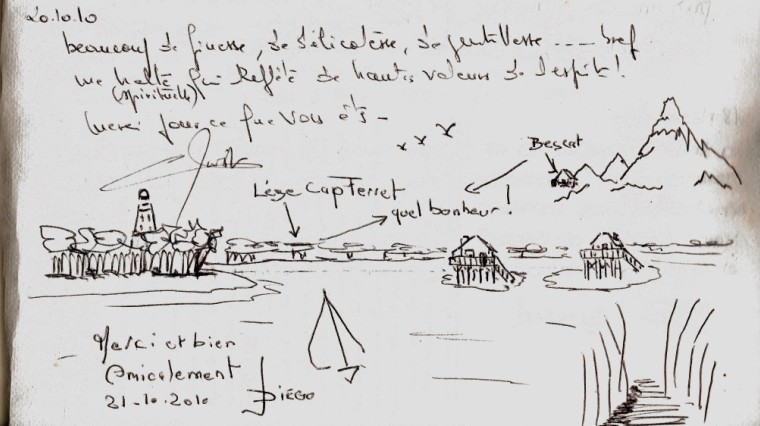 20.10.10
beaucoup de finesse, de délicatesse, de gentillesse ---- bref
une halte qui Reflète de hautes valeurs de l'esprit!
(spirituelle)
Merci pour ce que vous êtes -
Bescat
Lège Cap Ferret
quel bonheur!
Merci et bien
Amicalement
21-10.2010 Diégo